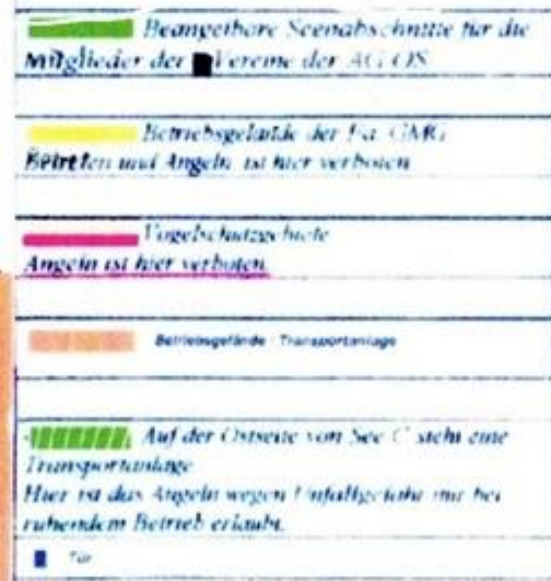 Beangelbare Seenabschnitte für die
Mitglieder der Vereine der AG OS
Betriebsgelände der Fa. GMG
Betreten und Angeln ist hier verboten
Vogelschutzgebiete
Angeln ist hier verboten.
Betriebsgelände Transportanlage
Auf der Ostseite von See C steht eine
Transportanlage
Hier ist das Angeln wegen Unfallgefahr nur bei
ruhendem Betrieb erlaubt.
Tür